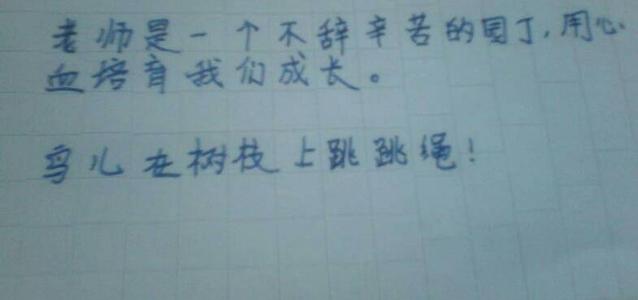 老师是一个不辞辛苦的园丁,用心
血培育我们成长。
鸟儿在树枝上跳跳绳!